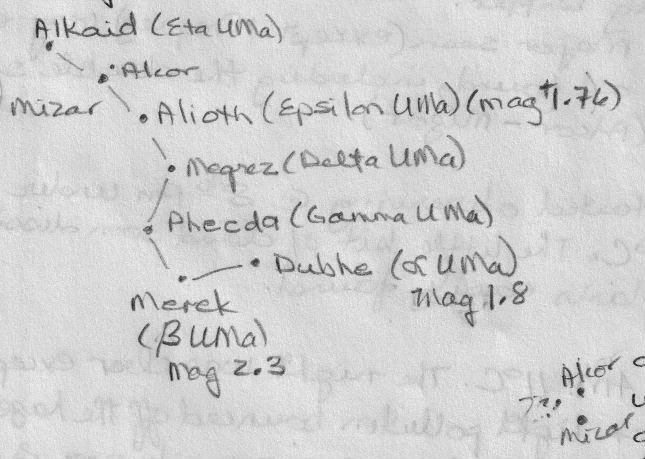 Alkaid (Eta UMa)
Alcor
Mizar
Alioth (Epsilon UMa) (mag +1.76)
Megrez (Delta UMa)
Phecda (Gamma UMa)
Dubhe (α UMa)
Mag 1.8
Merek
(β UMa)
mag 2.3
Alcor
???
mizar